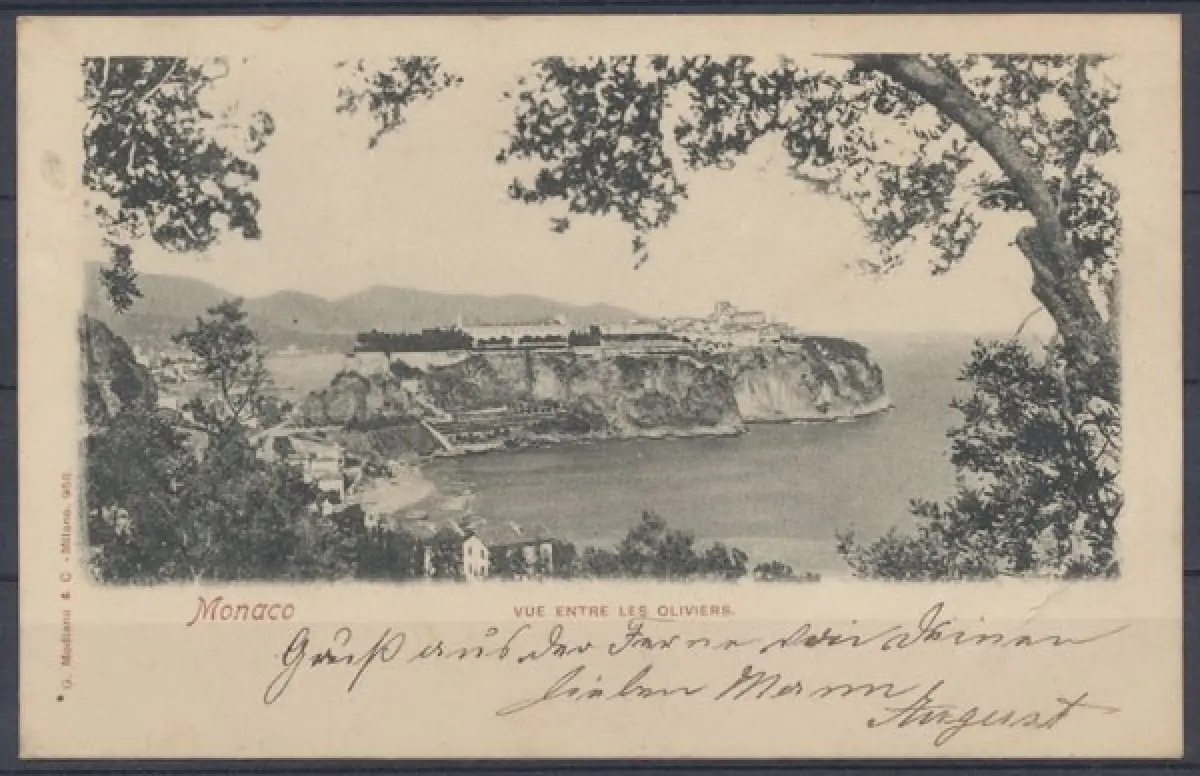 Monaco
VUE ENTRE LES OLIVIERS.
Gruß aus der Ferne von Deinen
lieben Mann
August
G. Modiano & C - Milano. 958.